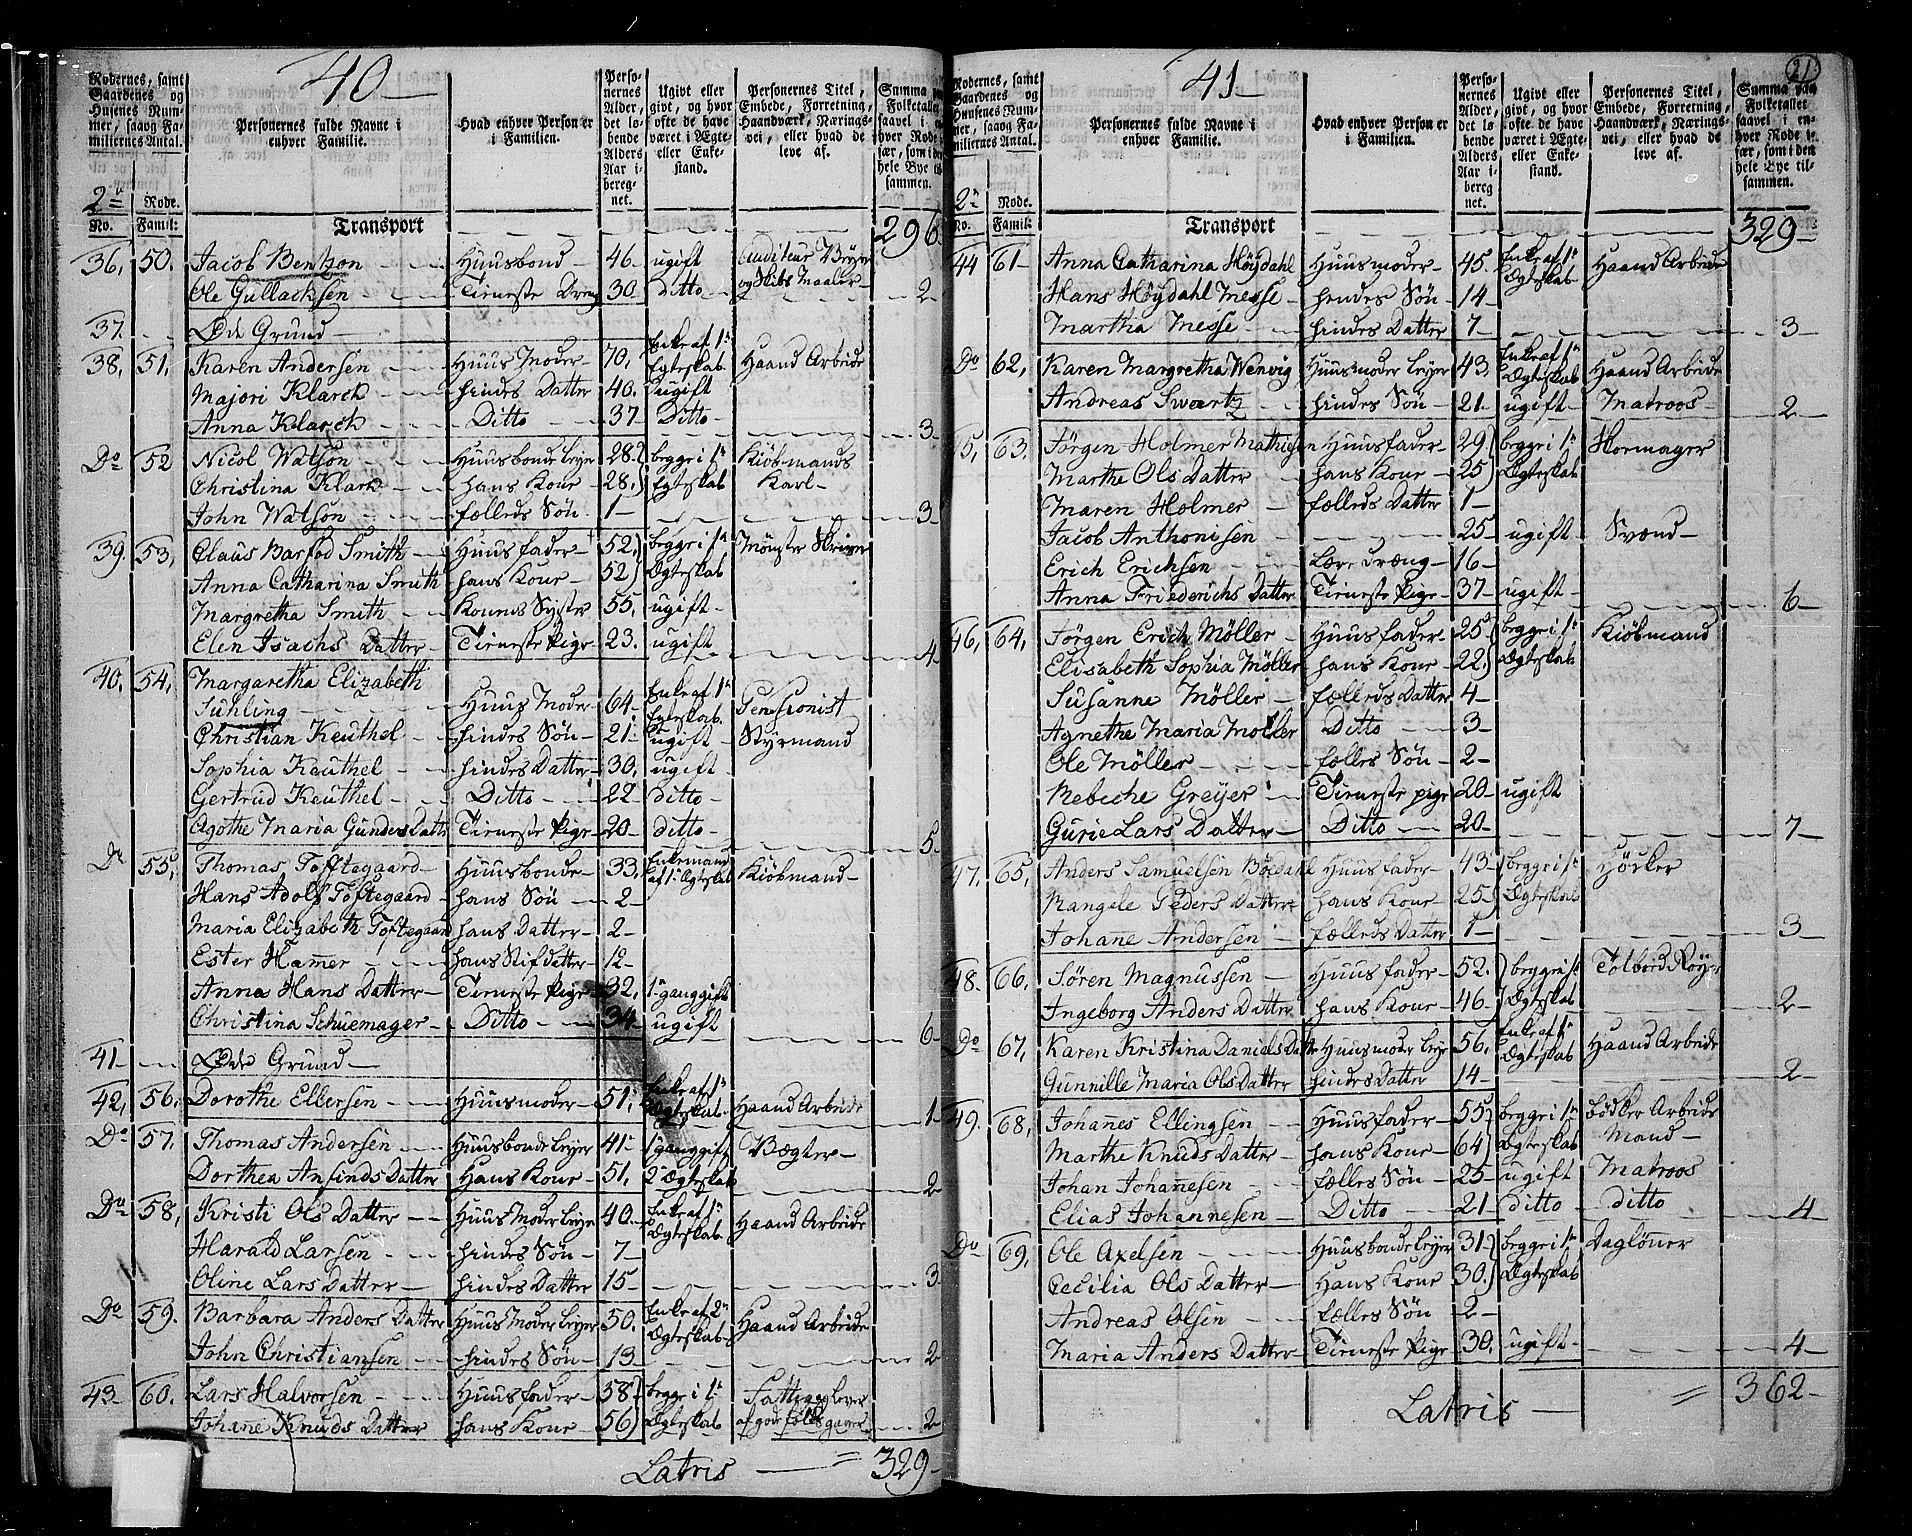 40
Rodernes, samt Gaardenes og Husenes Nummer, saavog Familiernes Antal.
Personernes fulde Navne i enhver Familie.
Hvad enhver Person er i Familien.
Personernes Alder, det løbende Alders Aar iberegnet.
Ugivt eller givt, og hvor ofte de have været i Ægte- eller Enkestand.
Personernes Titel, Embede, Forretning, Haandværk, Næringsvei, eller hvad de leve af.
Summa paa Folketallet saavel i enhver Rode især, som i den hele Bye tilsammen.
2n Rode.
No. Famil:
Transport 296
36, 50. Jacob Bentzon Huusbond 46 ugift Auditeur Bryer og Skibs Maaler
Ole Gullachsen Tieneste Dreng 30 Ditto 2
37. Øde Grund
38, 51, Karen Andersen Huus Moder 70, Enke af 1n Egteskab Haand Arbeide
Majori Klarck hindes Datter 40. ugift
Anna Klarck Ditto 37 Ditto 3
Do 52 Nicol Watson Huusbonde Leyer 28 begge i 1n Egteskab Kiøbmands Karl
Christina Klarck hans Kone 28
John Watson fælleds Søn 1 3
39. 53, Claus Barfod Smith Huusfader 52, begge i 1n Ægteskab Mønster Skriver
Anna Catharina Smith hans Kone 52
Margretha Smith Konens Syster 55, ugift
Elen Isachs Datter Tieneste Pige 23. ugift 4
40. 54, Margaretha Elizabeth
Suhling Huus Moder 64 Enke af 1n Egteskab Pensionist
Christian Keuthel hindes Søn 21 ugift Styrmand
Sophia Keuthel hindes Datter 30, ugift
Gertrud Keuthel Ditto 22 ditto
Agothe Maria Gunders Datter Tieneste Pige 20 ditto 5
Do 55, Thomas Toftegaard Huusbonde 33, Enkemand af 1n Ægteskab Kiøbmand
Hans Adolf Toftegaard hans Søn 2
Maria Elizabeth Toftegaard hans Datter 2
Ester Ham̄er hans Stifdatter 12
Anna Hans Datter Tieneste Pige 32, 1n gang gift
Christina Schuemager Ditto 34 ugift 6
41 Øde Grund
42, 56. Dorothe Ellersen Huusmoder 51, Enke af 1n Ægteskab Haand Arbeide 1
Do 57. Thomas Andersen Huusbonde Leyer 41 1n gang gift Vægter
Dorthea Anfinds Datter Hans Kone 51, 2n Ægteskab 2
Do 58, Kristi Ols Datter Huus Moder Leyer 40 Enke af 1n Ægteskab Haand Arbeide
Harald Larsen hindes Søn 7
Oline Lars Datter hindes Datter 15 3
Do 59. Barbara Anders Datter Huus Moder Leyer 50. Enke af 2n Ægteskab Haand Arbeide
John Christiansen hindes Søn 13 2
43 60. Lars Halvorsen Huusfader 58 begge i 1n Ægteskab Fattig og lever
Johan̄e Knuds Datter hans Kone 56 af gode folks gaver 2
Latris 329
21
41
Rodernes, samt Gaardenes og Husenes Nummer, saavog Familiernes Antal.
Personernes fulde Navne i enhver Familie.
Hvad enhver Person er i Familien.
Personernes Alder, det løbende Alders Aar iberegnet.
Ugivt eller givt, og hvor ofte de have været i Ægte- eller Enkestand.
Personernes Titel, Embede, Forretning, Haandværk, Næringsvei, eller hvad de leve af.
Summa paa Folketallet saavel i enhver Rode især, som i den hele Bye tilsammen.
2n Rode.
No. Famil:
Transport 329
44 61 Anna Catharina Høydahl Huusmoder 45. Enke af 1n Ægteskab Haand Arbeide
Hans Høydahl Messe hendes Søn 14
Martha Messe hindes Datter 7 3
Do 62, Karen Margretha Wenvig Huusmoder Leyer 43, Enke af 1n Ægteskab Haand Arbeide
Andreas Swartz hindes Søn 21 ugift Matroos 2
5, 63. Jørgen Holmer Mathigen Huusfader 29 begge i 1n Ægteskab Skormager
Marthe Ols Datter hans Kone 25
Maren Holmer fælleds Datter 1
Jacob Anthonisen 25 ugift Svænd
Erich Erichsen Lære Dræng 16
Anna Friederichs Datter Tieneste Pige 37 ugift 6
46, 64, Jørgen Erich Möller Huusfader 25 begge i 1n Ægteskab Kiøbmand
Elisabeth Sophia Möller hans Kone 22
Susanne Möller fælleds Datter 4
Agnethe Maria Moller Ditto 3
Ole Möller fælles Søn 2
Rebeche Greyer Tieneste pige 20 ugift
Gurie Lars Datter Ditto 20 7
47. 65, Anders Samuelsen Böedahl Huusfader 43 begge i 1n Ægteskab Høcker
Mangele Peders Datter hans Kone 25
Johan̄e Andersen fælleds Datter 1 3
48. 66, Sören Magnussen Huusfader 52. begge i 1n Ægteskab Tolbord Røyer
Ingeborg Anders Datter hans Kone 46 2
Do 67, Karen Kristina Daniels Datter Huusmoder Leyer 56, Enke af 1n Ægteskab Haand Arbeide
Gunnille Maria Ols Datter hindes Datter 14 2
49. 68, Johan̄es Ellingsen Huusfader 55, begge i 1n Ægteskab bødker Arbeide Mand
Marthe Knuds Datter hans Kone 64
Johan Johan̄esen fælles Søn 25 ugift Matroos
Elias Johannesen Ditto 21 ditto ditto 4
Do 69, Ole Axelsen Huusbonde Leyer 31 begge i 1n Ægteskab Dagløner
Cecilia Ols Datter Hans Kone 30.
Andreas Olsen fælles Søn 2
Maria Anders Datter Tieneste Pige 30. ugift 4
Latris 362